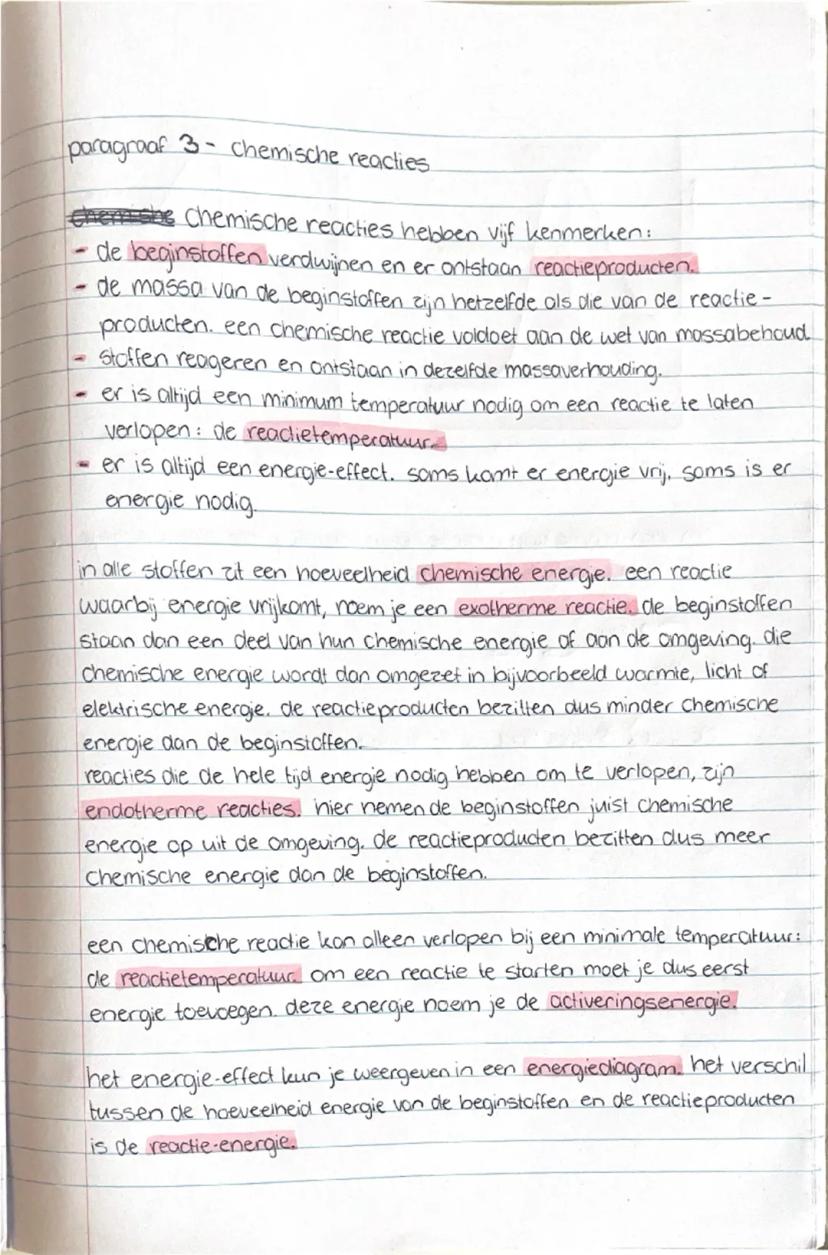 paragraaf 3 - chemische reacties
Chemische reacties hebben vijf kenmerken:
- de beginstoffen verdwijnen en er ontstaan reactieproducten.
- de massa van de beginstoffen zijn hetzelfde als die van de reactie-
producten. een chemische reactie voldoet aan de wet van massabehoud.
- stoffen reageren en ontstaan in dezelfde massaverhouding.
- er is altijd een minimum temperatuur nodig om een reactie te laten
verlopen: de reactietemperatuur.
- er is altijd een energie-effect. soms komt er energie vrij, soms is er
energie nodig.
in alle stoffen zit een hoeveelheid chemische energie. een reactie
waarbij energie vrijkomt, noem je een exotherme reactie. de beginstoffen
staan dan een deel van hun chemische energie af aan de omgeving. die
chemische energie wordt dan omgezet in bijvoorbeeld warmte, licht of
elektrische energie. de reactieproducten bezitten dus minder chemische
energie dan de beginstoffen.
reacties die de hele tijd energie nodig hebben om te verlopen, zijn
endotherme reacties. hier nemen de beginstoffen juist chemische
energie op uit de omgeving. de reactieproducten bezitten dus meer
chemische energie dan de beginstoffen.
een chemische reactie kan alleen verlopen bij een minimale temperatuur:
de reactietemperatuur. om een reactie te starten moet je dus eerst
energie toevoegen. deze energie noem je de activeringsenergie.
het energie-effect kun je weergeven in een energiediagram. het verschil
tussen de hoeveelheid energie van de beginstoffen en de reactieproducten
is de reactie-energie.